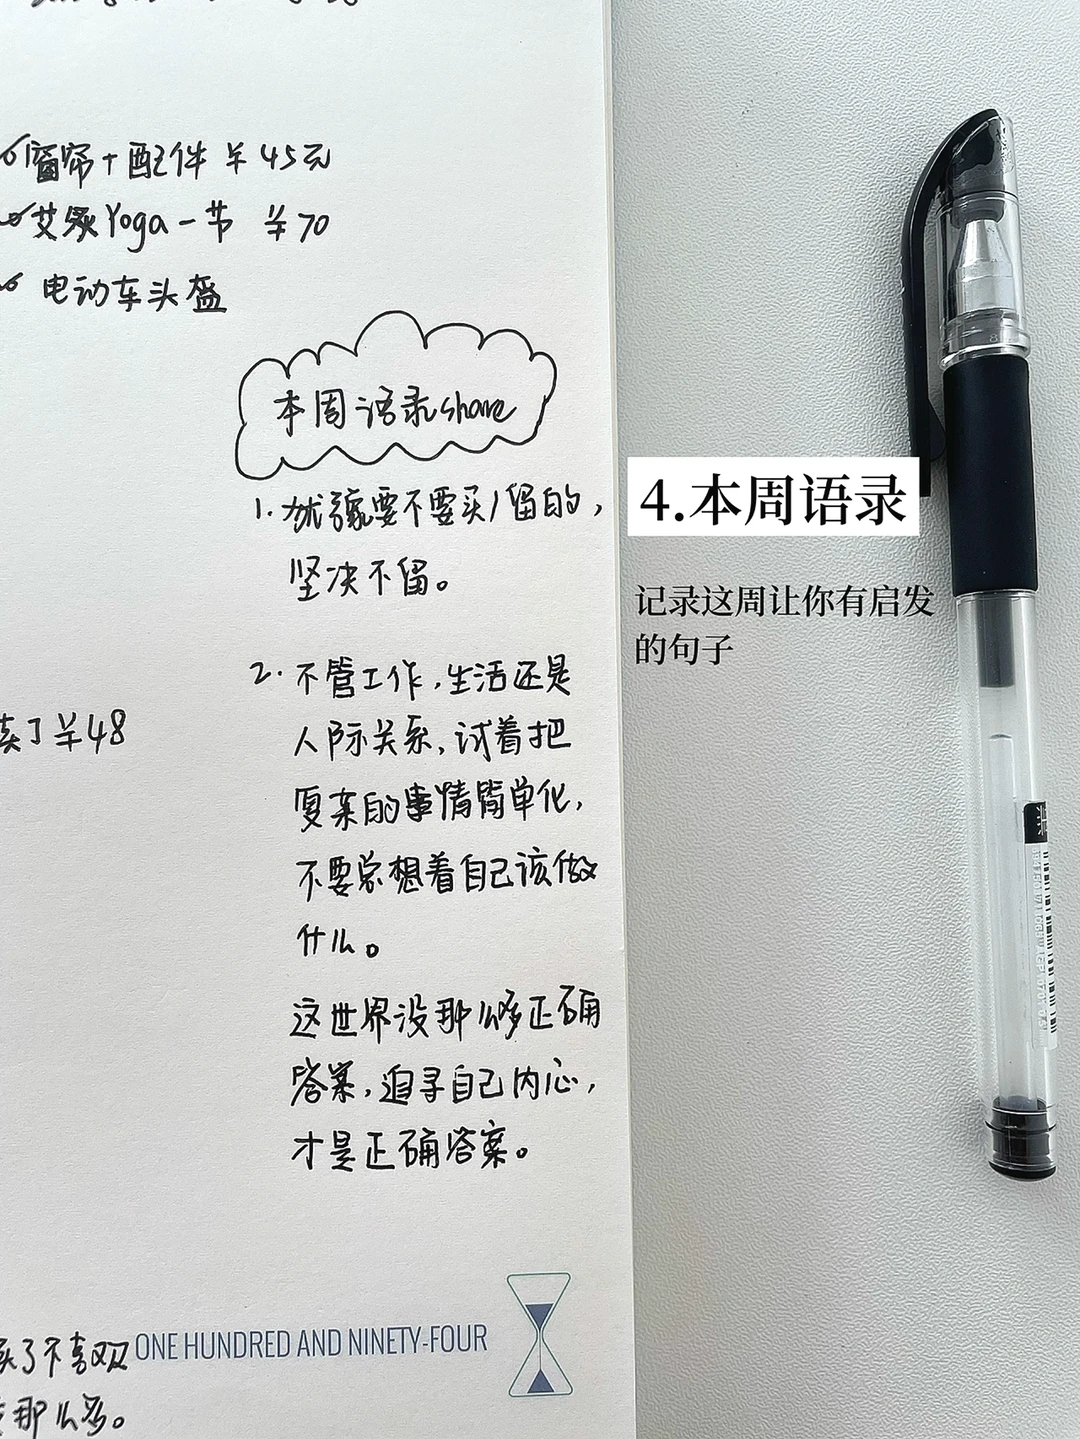 窗帘+配件 ¥45元
艾家Yoga一节 ¥70
电动车头盔
本周语录share
1. 犹豫要不要买/留的,
坚决不留。
4.本周语录
记录这周让你有启发
的句子
2. 不管工作,生活还是
人际关系,试着把
复杂的事情简单化,
不要总想着自己该做
什么。
卖了¥48
这世界没那么多正确
答案,追寻自己内心,
才是正确答案。
ONE HUNDRED AND NINETY-FOUR
买了不喜欢
那么多。